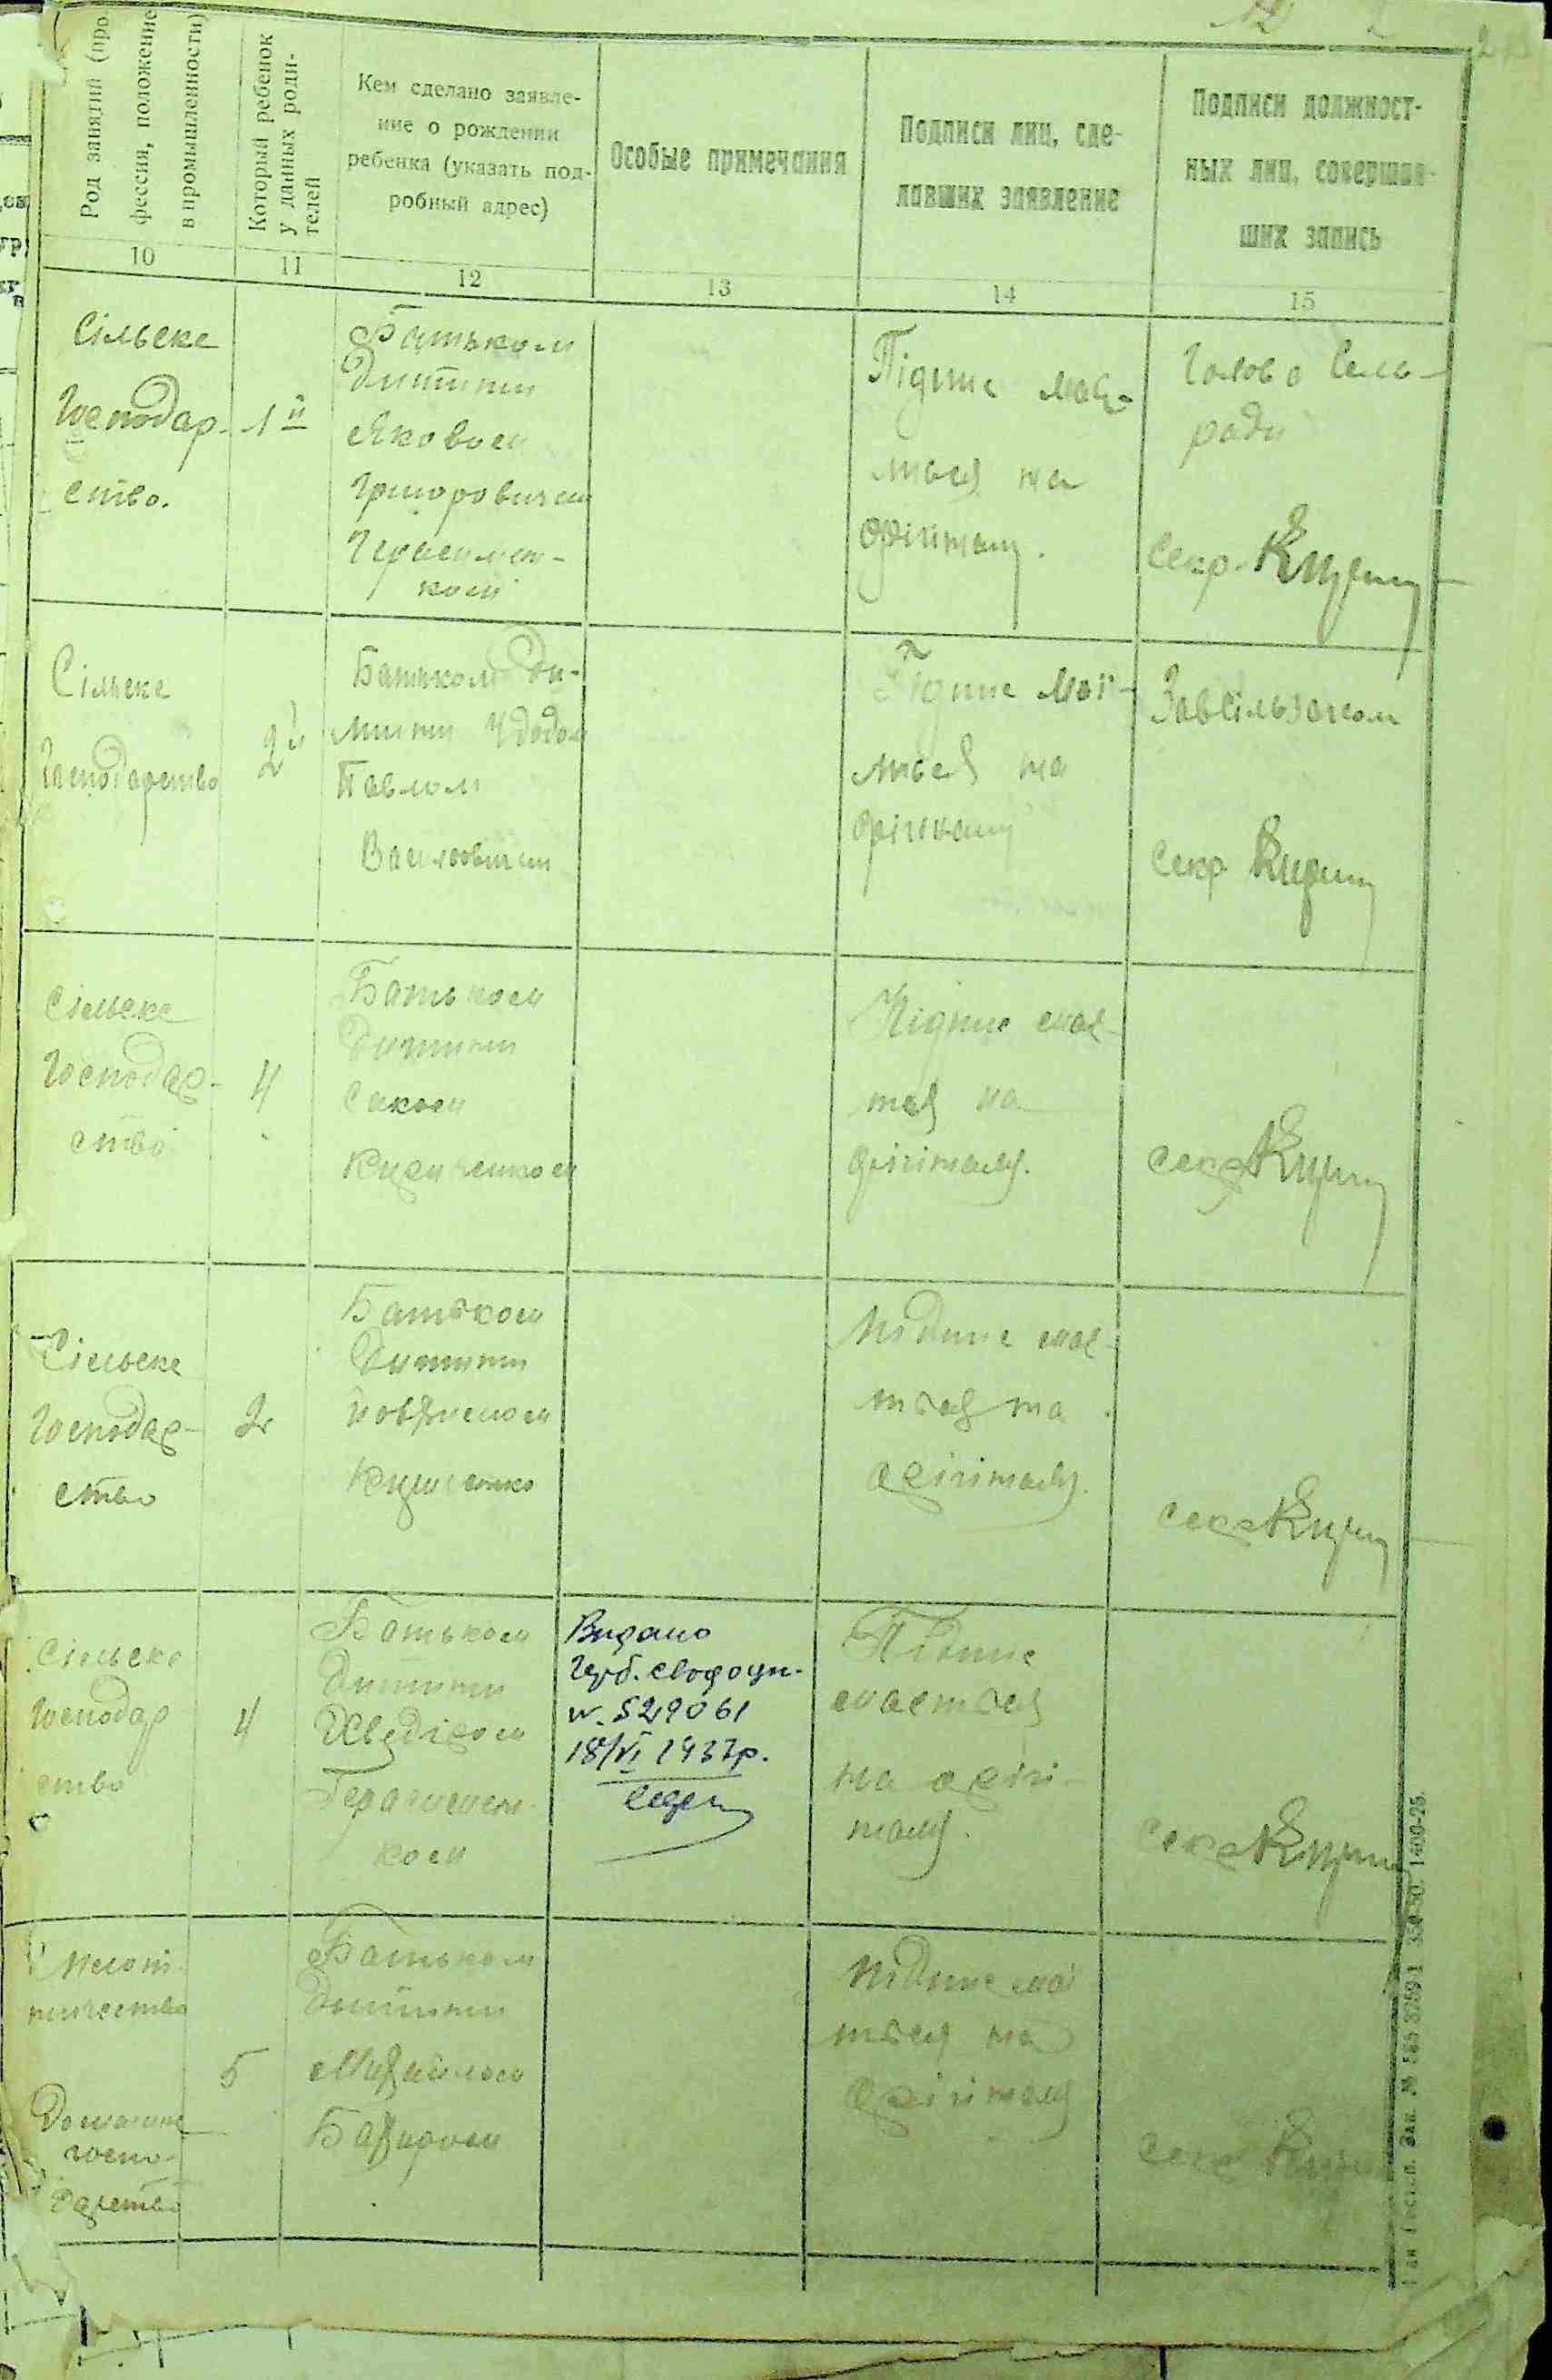 Род занятий (про-
фессия, положение
в промышленности)
Который ребенок
у данных роди-
телей
Кем сделано заявле-
ние о рождении
ребенка (указать под-
робный адрес)
Особые примечания
Подписи лиц, сде-
лавших заявление
Подписи должност-
ных лиц, совершав-
ших запись
10
11
12
13
14
15
Сільське
Господар-
ство.
1й
Батьком
Дитини
Яковом
Григоровичем
Герасимен-
ком
Підпис має-
ться на
орігіналу.
Голова Сель-
ради
Секр.
Сільске
Господарство
2й
Батьком Ди-
тини Удодом
Павлом
Василовичем
Підпис маї-
ться на
орігіналу
Секр
Сільске
Господар-
ство
4
Батьком
Дитини
Саком
Кириченком
Підпис має-
тся на
орігіналу.
секр
Сільске
Господар-
ство
2
Батьком
Дитини
Кириченко
Підпис має-
ться на
орігіналу.
секр
Сільске
Господар
ство
4
Батьком
Дитини
Хведіром
Герасимен-
ком
Видано
N. 529061
18/VI 1937р.
Підпис
маеться
на орігі-
налу.
секр
Домашне
госпо-
дарство
5
Батьком
Дитини
Михайлом
Підпис має
ться на
орігіналу
секр